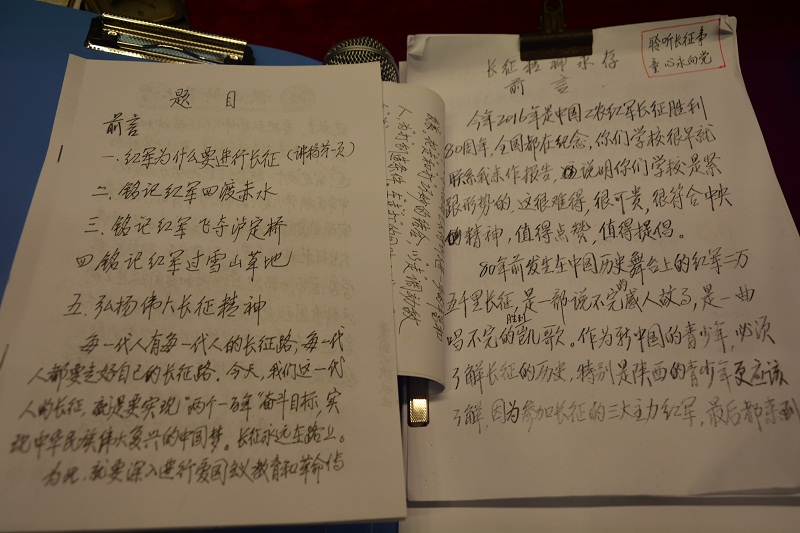 题目
前言
一.红军为什么要进行长征(讲稿第一页)
二.铭记红军四渡赤水
三.铭记红军飞夺泸定桥
四铭记红军过雪山草地
五.弘扬伟大长征精神
每一代人有每一代人的长征路,每一代
人都要走好自己的长征路。今天,我们这一代
人的长征,就是要实现"两个一百年"奋斗目标,实
现中华民族伟大复兴的中国梦。长征永远在路上。
为此,就要深入进行爱国主义教育和革命传
聆听长征事
童心永向党
长征精神永存
前言
今年2016年是中国工农红军长征胜利
80周年,全国都在纪念,你们学校很早就
联系我来作报告,说明你们学校是紧
跟形势的,这很难得,很可贵,很符合中央
的精神,值得点赞,值得提倡。
80年前发生在中国历史舞台上的红军二万
五千里长征,是一部说不完的感人故事,是一曲
唱不完的胜利凯歌。作为新中国的青少年,必须
了解长征的历史,特别是陕西的青少年更应该
了解,因为参加长征的三大主力红军,最后都来到